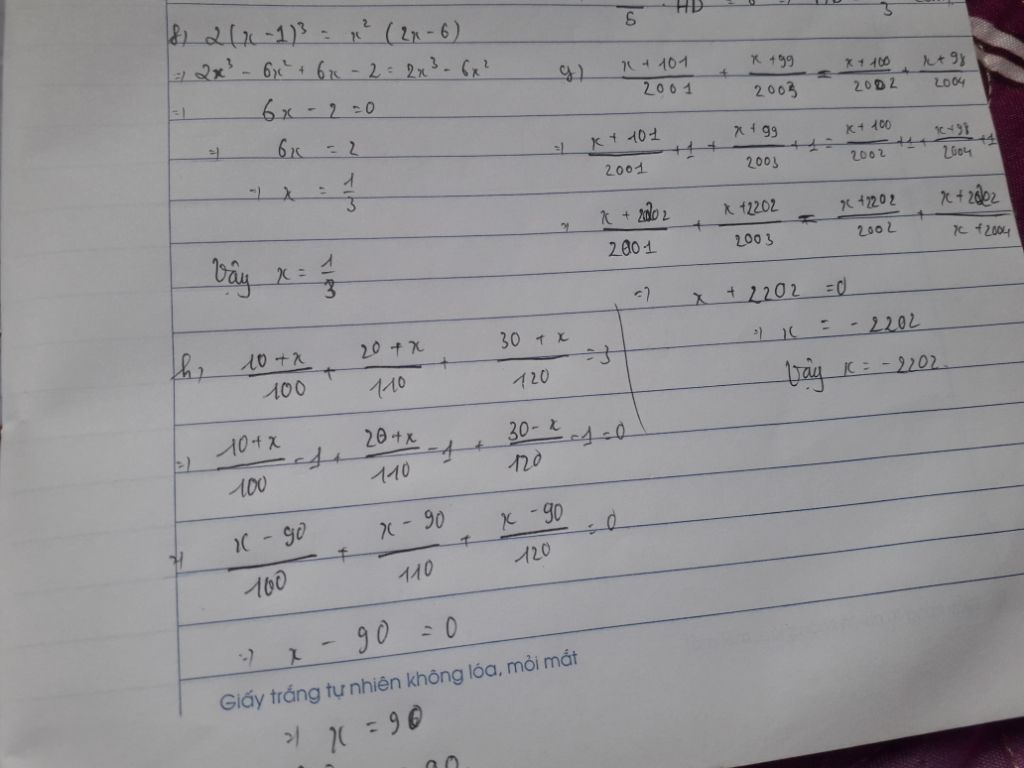 f, 2(x - 1)³ = x² (2x - 6)
=> 2x³ - 6x² + 6x - 2 = 2x³ - 6x²
=> 6x - 2 = 0
=> 6x = 2
=> x = 1/3
Vậy x = 1/3
g) (x + 101)/2001 + (x + 99)/2003 = (x + 100)/2002 + (x + 98)/2004
=> (x + 101)/2001 + 1 + (x + 99)/2003 + 1 = (x + 100)/2002 + 1 + (x + 98)/2004 + 1
=> (x + 2202)/2001 + (x + 2202)/2003 = (x + 2202)/2002 + (x + 2202)/(x + 2004)
=> x + 2202 = 0
=> x = - 2202
Vậy x = - 2202.
h, (10 + x)/100 + (20 + x)/110 + (30 + x)/120 = 3
=> (10 + x)/100 - 1 + (20 + x)/110 - 1 + (30 - x)/120 - 1 = 0
=> (x - 90)/100 + (x - 90)/110 + (x - 90)/120 = 0
=> x - 90 = 0
Giấy trắng tự nhiên không lóa, mỏi mắt
=> x = 90